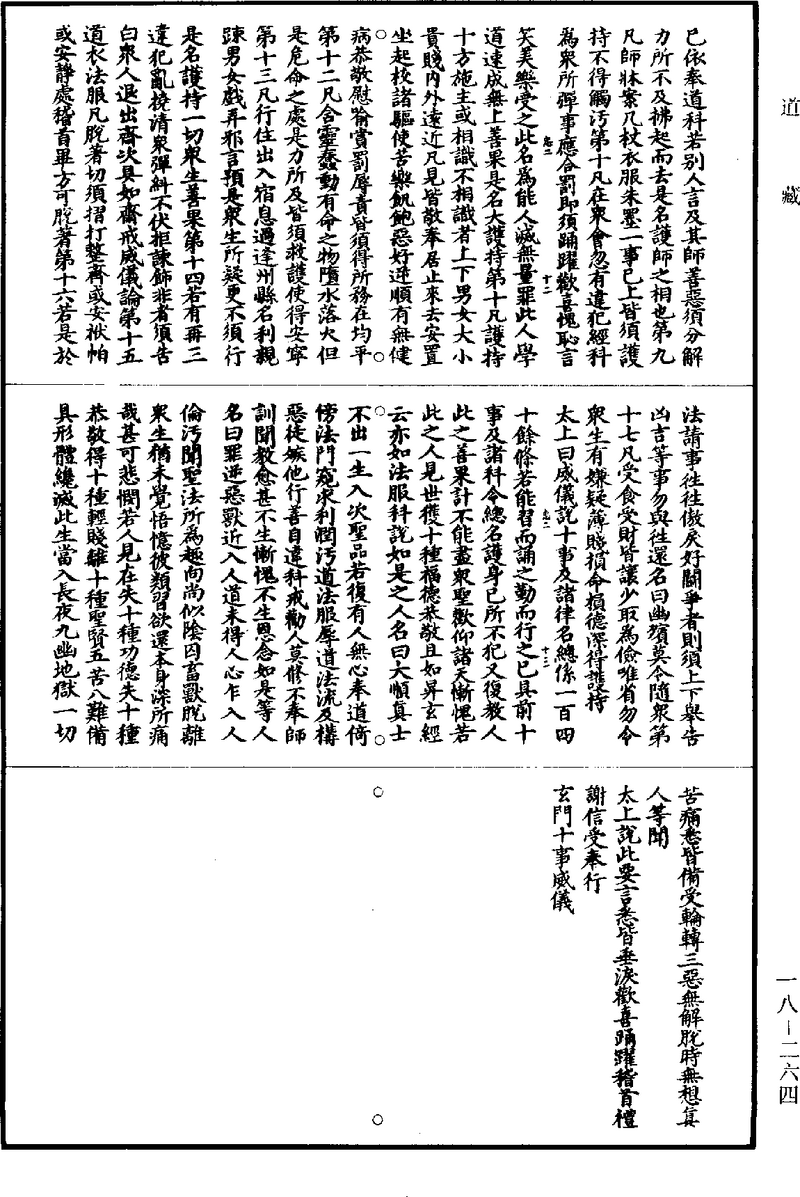 道藏
已依奉道科若別人言及其師善惡須分解
力所不及拂起而去是名護師之相也第九
凡師牀案几杖衣服朱墨一事已上皆須護
持不得觸汚第十凡在衆會忽有違犯經科
為衆所彈事應合罰即須踊躍歡喜愧恥言
笑美樂受之此名為能人滅無量罪此人學
道速成無上善果是名大護持第十凡護持
十方施主或相識不相識者上下男女大小
貴賤內外遠近凡見皆敬奉居止來去安置
坐起校諸驅使苦樂飢飽惡好逆順有無健
病恭敬慰喻賞罰辱責皆須得所務在均平
第十二凡含靈蠢動有命之物墮水落火但
是危命之處是力所及皆須救護使得安寧
第十三凡行住出入宿息過逵州縣名利親
踈男女戲弄邪言預是衆生所疑更不須行
是名護持一切衆生善果第十四若有再三
違犯亂撓清衆彈糾不伏拒諫飾非者須告
白衆人退出齋次具如齋戒威儀論第十五
道衣法服凡脫著切須摺打整齊或安袱帕
或安靜處稽首畢方可脫著第十六若是於
法請事往往傲戾好鬪爭者則須上下舉告
凶吉等事勿與往還名曰幽頑莫令隨衆第
十七凡受食受財皆讓少取為儉唯省勿令
衆生有嫌疑薄賤損命損德深得護持
太上曰威儀說十事及諸律名總係一百四
十餘條若能習而誦之勤而行之已具前十
事及諸科令總名護身已所不犯又復教人
此之善果計不能盡衆聖歡仰諸天慚愧若
此之人見世獲十種福德恭敬且如昇玄經
云亦如法服科說如是之人名曰大順真士
不出一生入次聖品若復有人無心奉道倚
傍法門窺求利潤汚道法服辱道法流及搆
惡徒嫉他行善自違科戒勸人莫修不奉師
訓聞教愈甚不生慚愧不生恩念如是等人
名曰罪逆惡獸近入人道未得人心乍入人
倫汚聞聖法所為趣向尚似陰囚畜獸脫離
衆生猶未覺悟憶彼類習欲還本身深所痛
哉甚可悲憫若人見在失十種功德失十種
恭敬得十種輕賤離十種聖賢五苦八難備
具形體纔滅此生當入長夜九幽地獄一切
苦痛悉皆備受輪轉三惡無解脫時無想真
人等聞
太上說此要言悉皆垂淚歡喜踊躍稽首禮
謝信受奉行
玄門十事威儀
一八－二六四